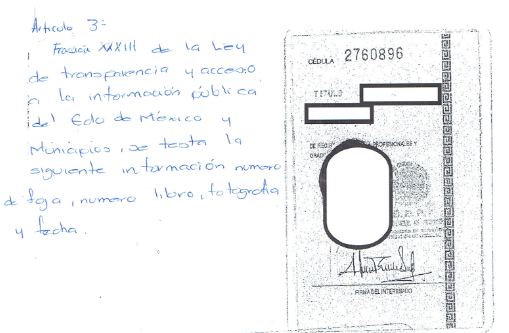 Articulo 3:
Fracción XXXIII de la Ley
de transparencia y acceso
a la información pública
del Edo de México y
Municipios, se testa la
siguiente información numero
de foja, numero libro, fotografia
y fecha.
CÉDULA 2760896
TITULO
PROFESIONALES Y
FIRMA DEL INTERESADO